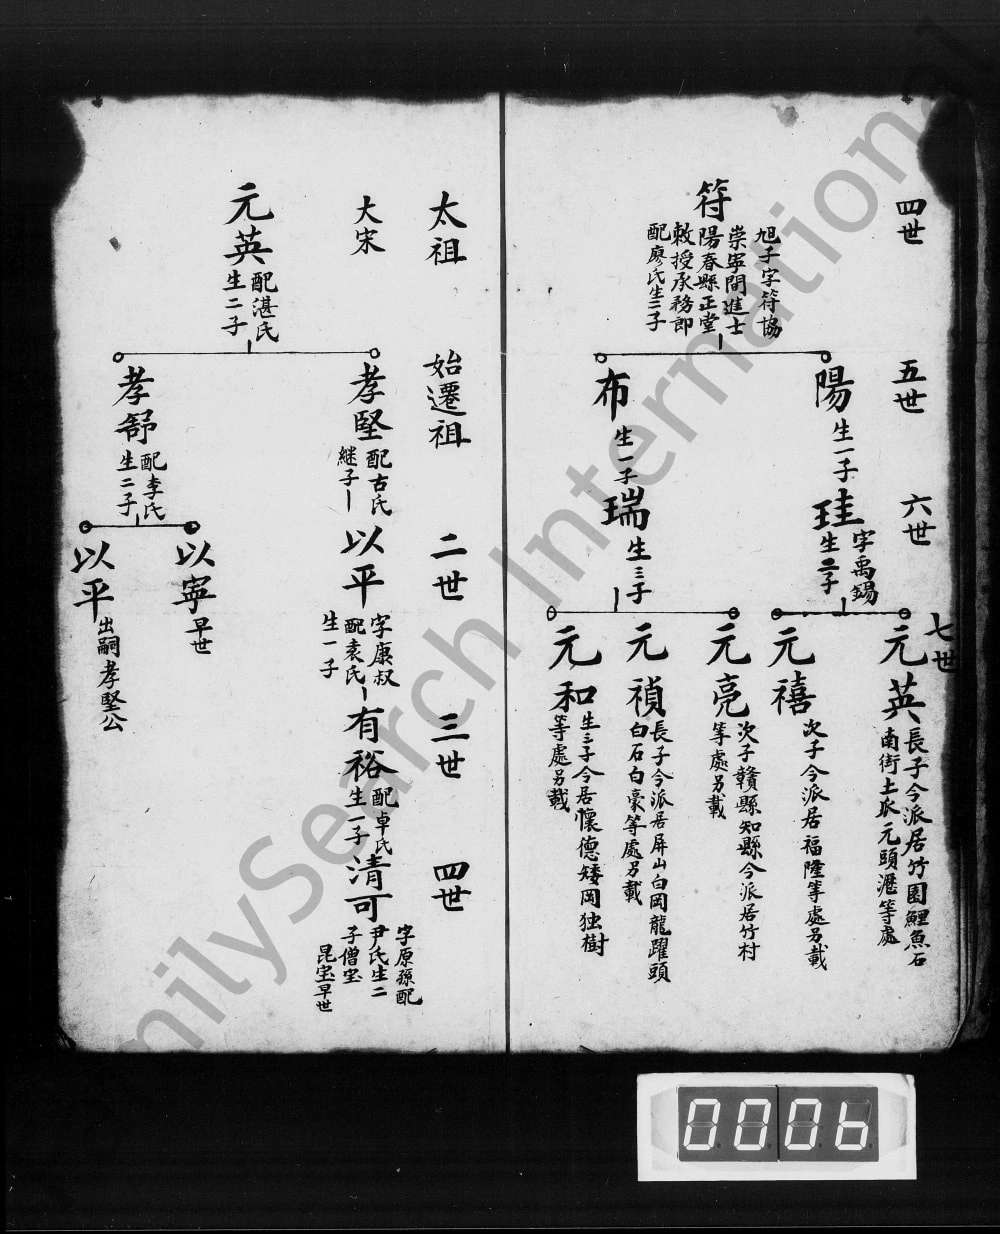 四世
符
旭子字符協
崇寧間進士
陽春縣正堂
敕授承務郎
配廖氏生二子
五世
陽
生一子
布
生一子
六世
珪
字禹錫
生二子
瑞
生三子
七世
元英
長子今派居竹園鯉魚石
南街上水元頭瀝等處
元禧
次子今派居福隆等處另載
元亮
次子贛縣知縣今派居竹村
等處另載
元禎
長子今派居屏山白岡龍躍頭
白石白豪等處另載
元和
生三子今居懷德矮岡独樹
等處另載
太祖
始遷祖
二世
三世
四世
大宋
元英
配湛氏
生二子
孝堅
配古氏
継子
以平
字康叔
配袁氏
生一子
有裕
配卓氏
生一子
清可
字原孫配
尹氏生二
子僧宝
昆宝早世
孝舒
配李氏
生二子
以寧
早世
以平
出嗣孝堅公
milySearch International
0006